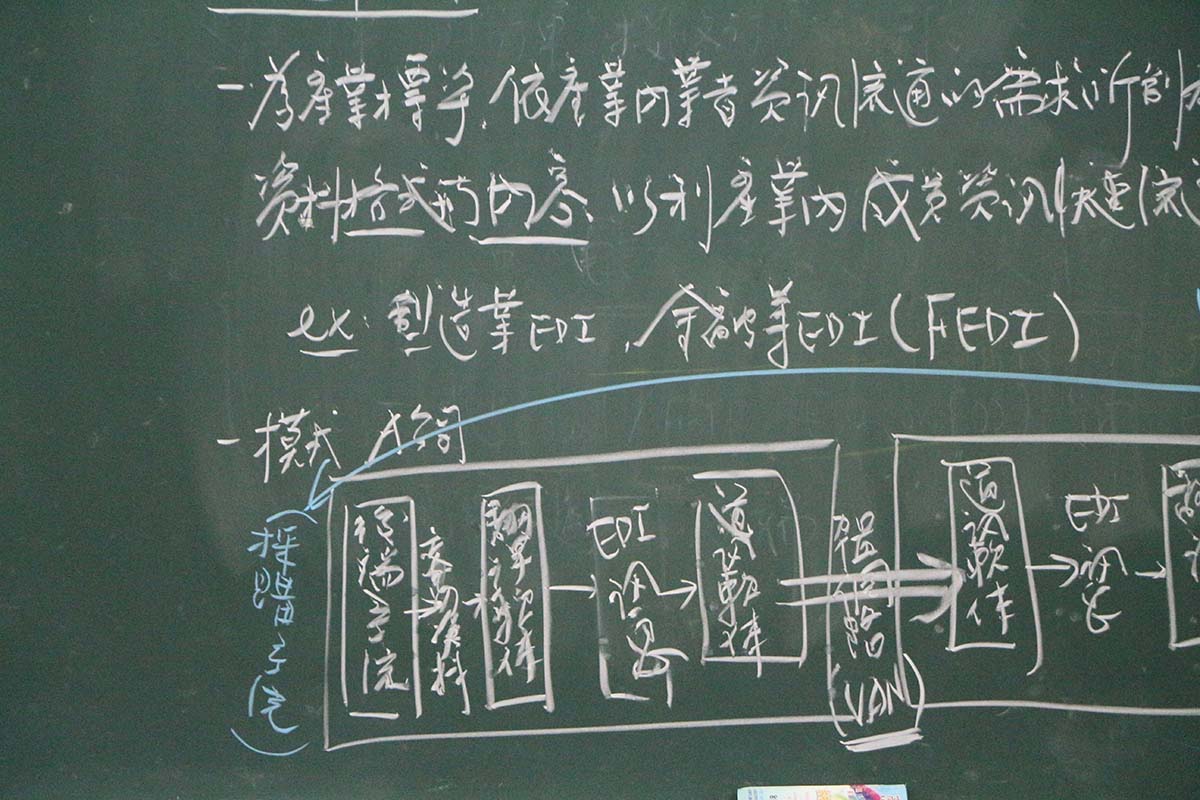 - 為產業標準, 依產業內業者資訊流通的需求所制
資料格式與內容, 以利產業內成員資訊快速流
ex: 製造業EDI, 金融業EDI (FEDI)
- 模式介紹
後端系統
交易資料
翻譯軟體
EDI訊息
通訊軟體
(VAN)
通訊軟體
EDI訊息